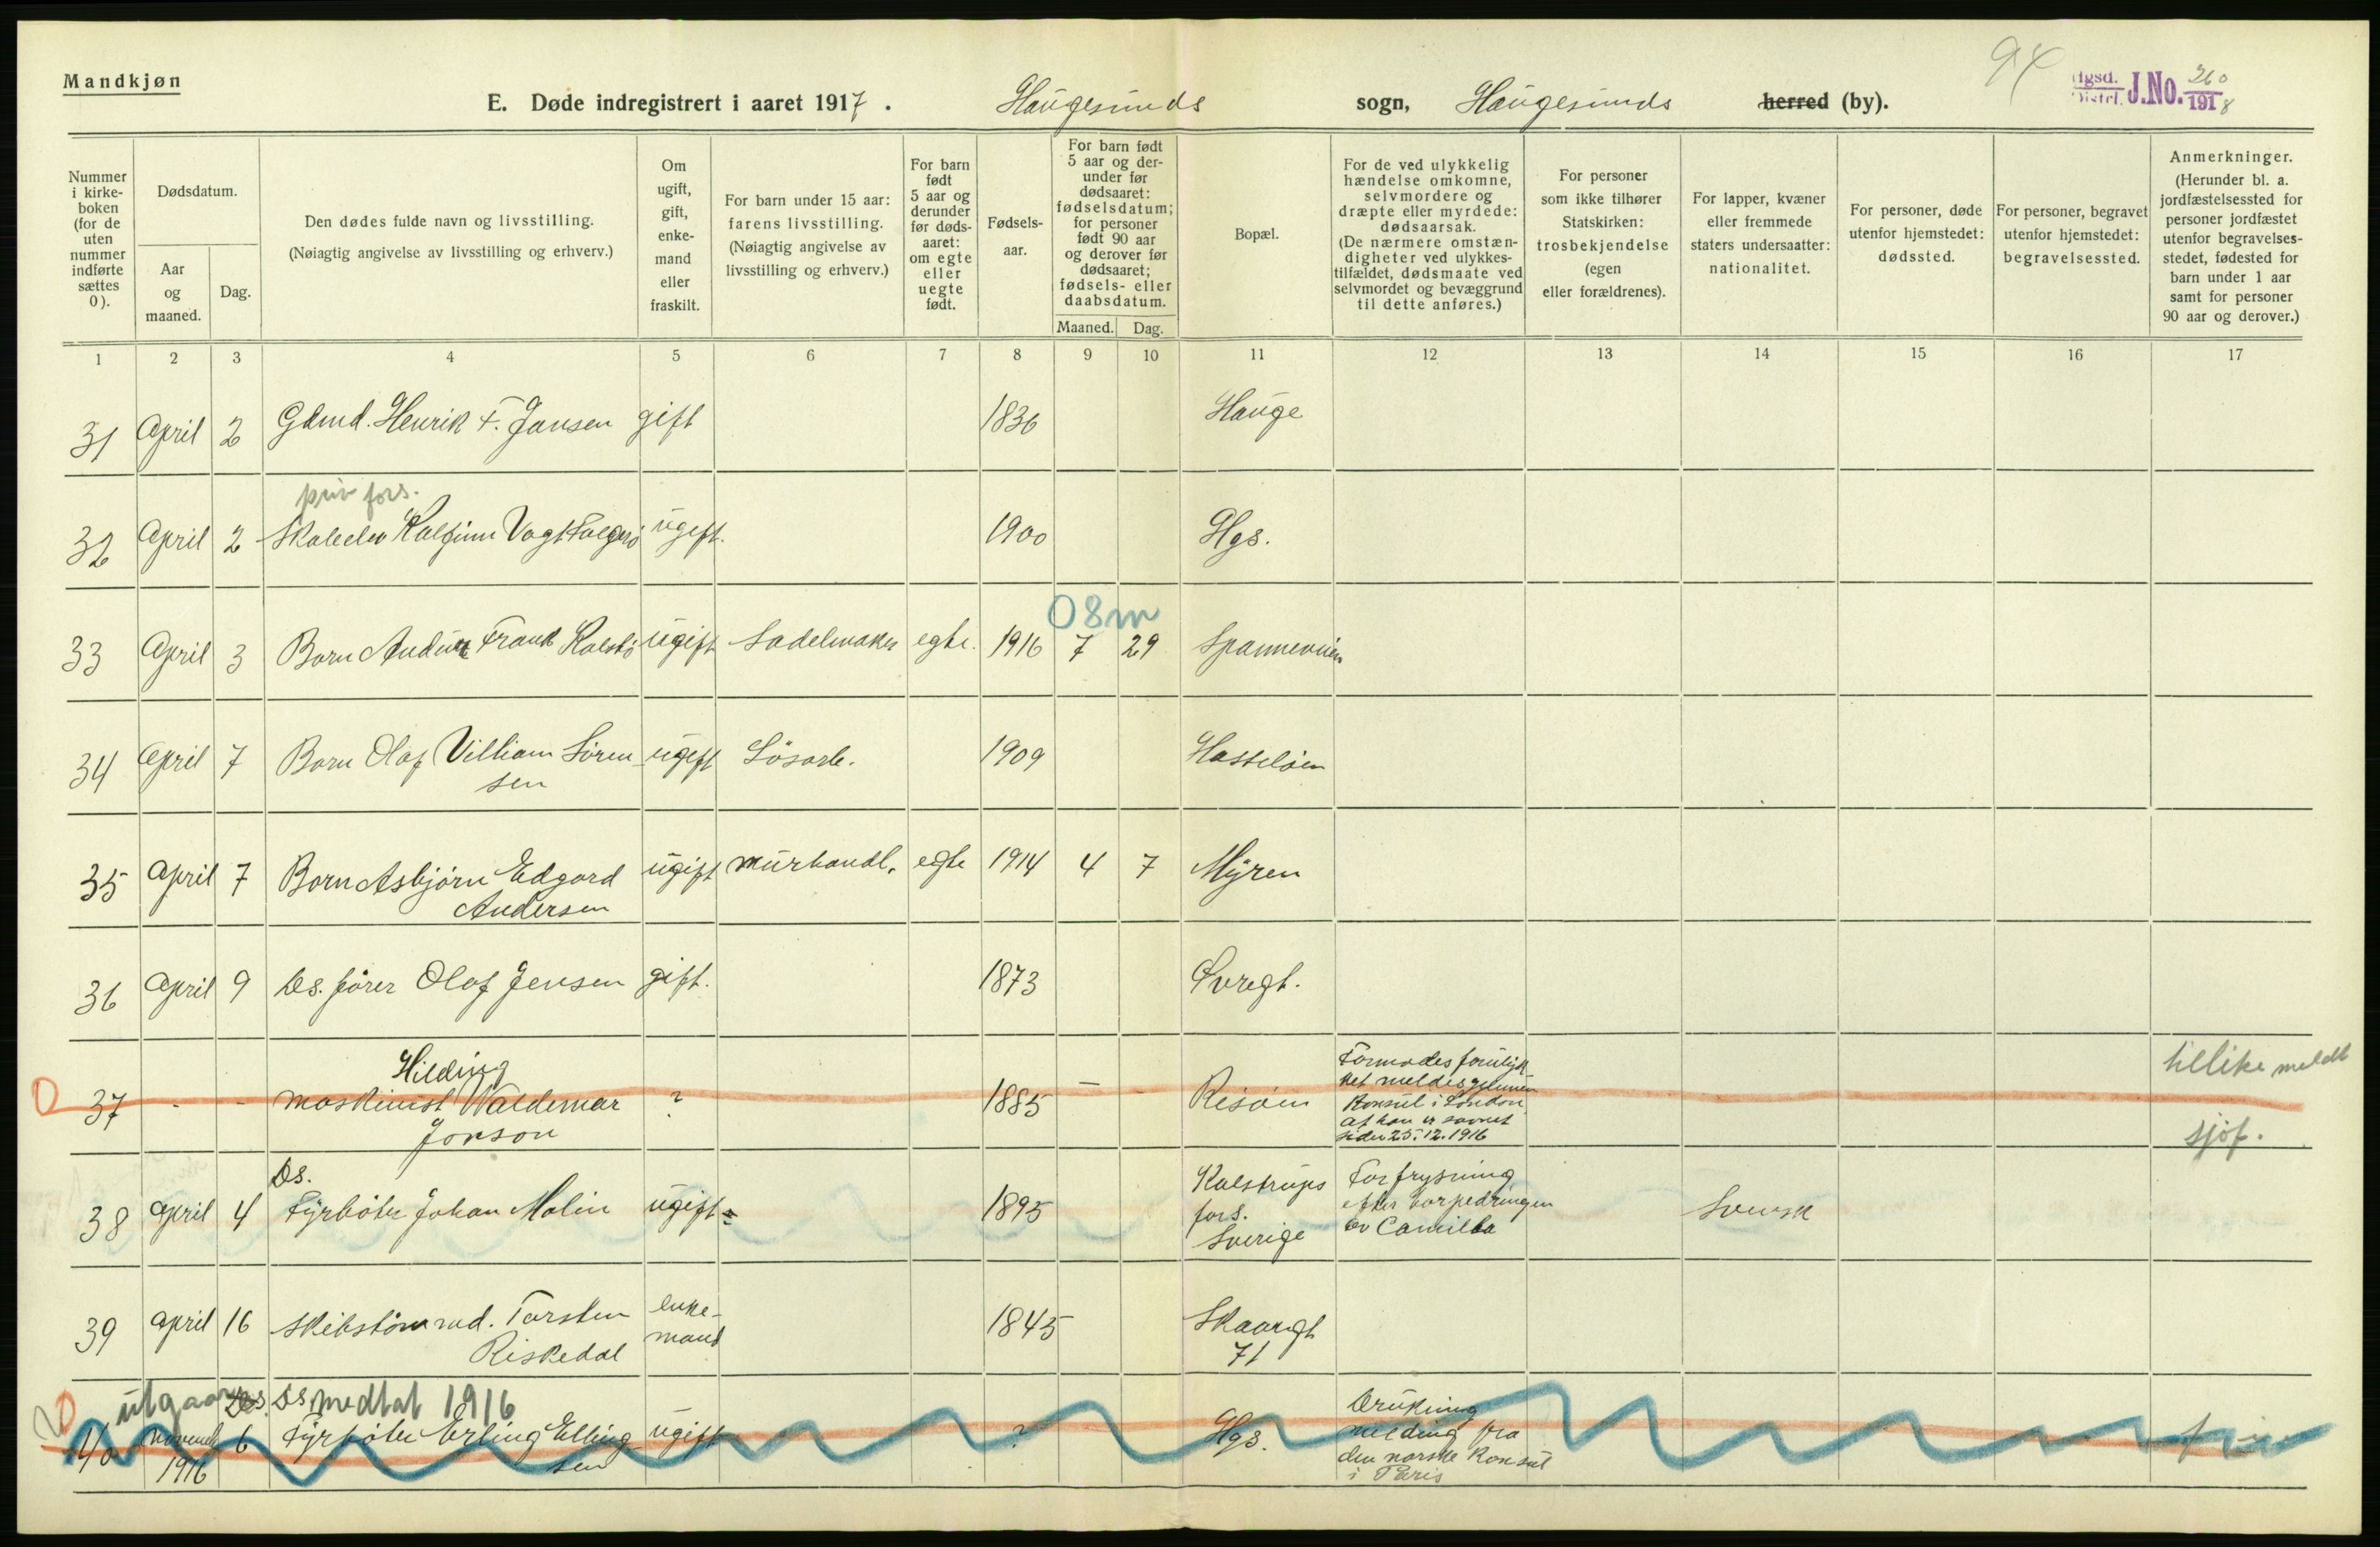 94
Mandkjøn
E. Døde indregistrert i aaret 1917. Haugesunds sogn, Haugesunds herred (by).
J.No. 360 / 1918
Nummer i kirkeboken (for de uten nummer indførte sættes 0).
Dødsdatum.
Aar og maaned.
Dag.
Den dødes fulde navn og livsstilling.
(Nøiagtig angivelse av livsstilling og erhverv.)
Om ugift, gift, enkemand eller fraskilt.
For barn under 15 aar: farens livsstilling.
(Nøiagtig angivelse av livsstilling og erhverv.)
For barn født 5 aar og derunder før dødsaaret: om egte eller uegte født.
Fødselsaar.
For barn født 5 aar og derunder før dødsaaret: fødselsdatum; for personer født 90 aar og derover før dødsaaret; fødsels- eller daabsdatum.
Maaned. Dag.
Bopæl.
For de ved ulykkelig hændelse omkomne, selvmordere og dræpte eller myrdede: dødsaarsak.
(De nærmere omstændigheter ved ulykkestilfældet, dødsmaate ved selvmordet og bevæggrund til dette anføres.)
For personer som ikke tilhører Statskirken: trosbekjendelse (egen eller forældrenes).
For lapper, kvæner eller fremmede staters undersaatter: nationalitet.
For personer, døde utenfor hjemstedet: dødssted.
For personer, begravet utenfor hjemstedet: begravelsessted.
Anmerkninger.
(Herunder bl. a. jordfæstelsessted for personer jordfæstet utenfor begravelsesstedet, fødested for barn under 1 aar samt for personer 90 aar og derover.)
1 2 3 4 5 6 7 8 9 10 11 12 13 14 15 16 17
31 April 2 Gdmd. Henrik F. Jansen gift 1836 Hauge
priv fors.
32 April 2 Skoleelev Vogt ugift. 1900 Hgs.
08m
33 April 3 Barn Frank Kolstö ugift Sadelmaker egte. 1916 7 29 Spanneveien
34 April 7 Barn Olaf Villiam Sörensen ugift Lösarb. 1909 Hasselöen
35 April 7 Barn Asbjörn Edgard Andersen ugift Murhandl. egte 1914 4 7 Myren
36 April 9 Ds. förer Olaf Jensen gift. 1873 Øvregt.
0 37 - - Maskinist Hilding Waldemar Jonson ? 1885 - - Risöen Formodes forulyk ket meldes gjennem Konsul i London at han er savnet siden 25.12.1916 tillike meldt sjöf.
38 April 4 Ds. Fyrböter Johan Malin ugift 1895 Kalstrups fors. Sverige Forfrysning efter torpedringen av Camilla Svensk
39 April 16 Skibstömmd. Torsten Riskedal enkemand 1845 Skaaregt 71
utgaar Ds. medtat 1916
0 40 Novemb 1916 6 Fyrböter Erling Ellingsen ugift ? Hgs. Drukning melding fra den norske Konsul i Paris